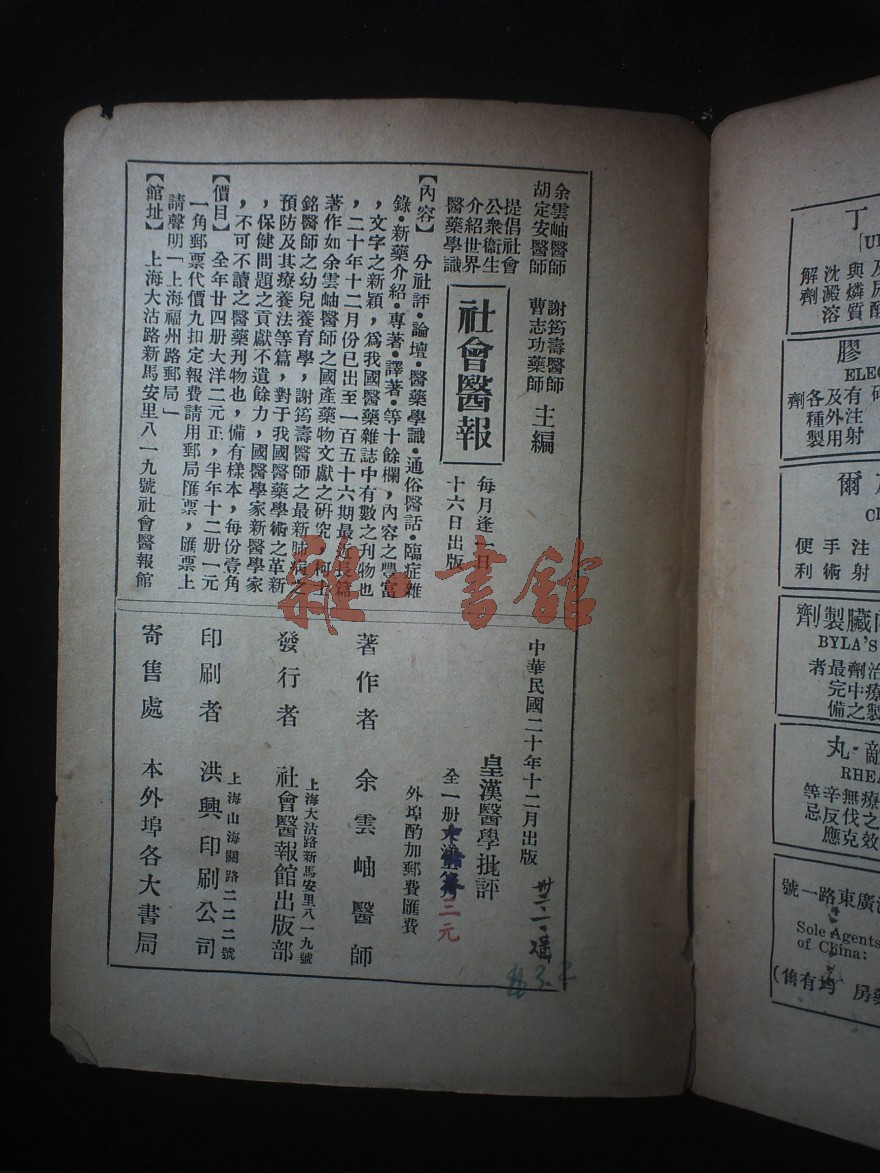 余雲岫醫師 謝筠壽醫師
胡定安醫師 曹志功藥師
主編
提倡社會
公衆衞生
介紹世界
醫藥學識
社會醫報
每月逢一日
十六日出版
【內容】 分社評•論壇•醫藥學識•通俗醫話•臨症雜
錄•新藥介紹•專著•譯著•等十餘欄，內容之豐富
，文字之新穎，爲我國醫藥雜誌中有數之刊物也
，二十年十二月份已出至一百五十六期最近長篇
著作如余雲岫醫師之國產藥物文獻之研究，柯士
銘醫師之幼兒養育學，謝筠壽醫師之最新肺病之
預防及其療養法等篇，對于我國醫藥學術之革新
，保健問題之貢獻不遺餘力，國醫學家新醫學家
，不可不讀之醫藥刊物也，備有樣本，每份壹角
【價目】 全年廿四册大洋二元正，半年十二册一元
一角郵票代價九扣定報費請用郵局匯票，匯票上
請聲明「上海福州路郵局」
【館址】 上海大沽路新馬安里八一九號社會醫報館
中華民國二十年十二月出版
皇漢醫學批評
全一册
三元
外埠酌加郵費匯費
著作者 余雲岫醫師
上海大沽路新馬安里八一九號
發行者 社會醫報館出版部
上海山海關路二二二號
印刷者 洪興印刷公司
寄售處 本外埠各大書局
雜•書館
丁
解劑
沈澱溶
與燐質
膠
ELEC
各種製劑
及外用
有注射
爾
便利
手術
注射
內臟製劑
BYLA'S
治療
劑中之製
最完備
者
丸
RHEA
療之效
無伐克
辛反應
等忌
廣東路一號
Sole Agents
of China:
藥房均有售)